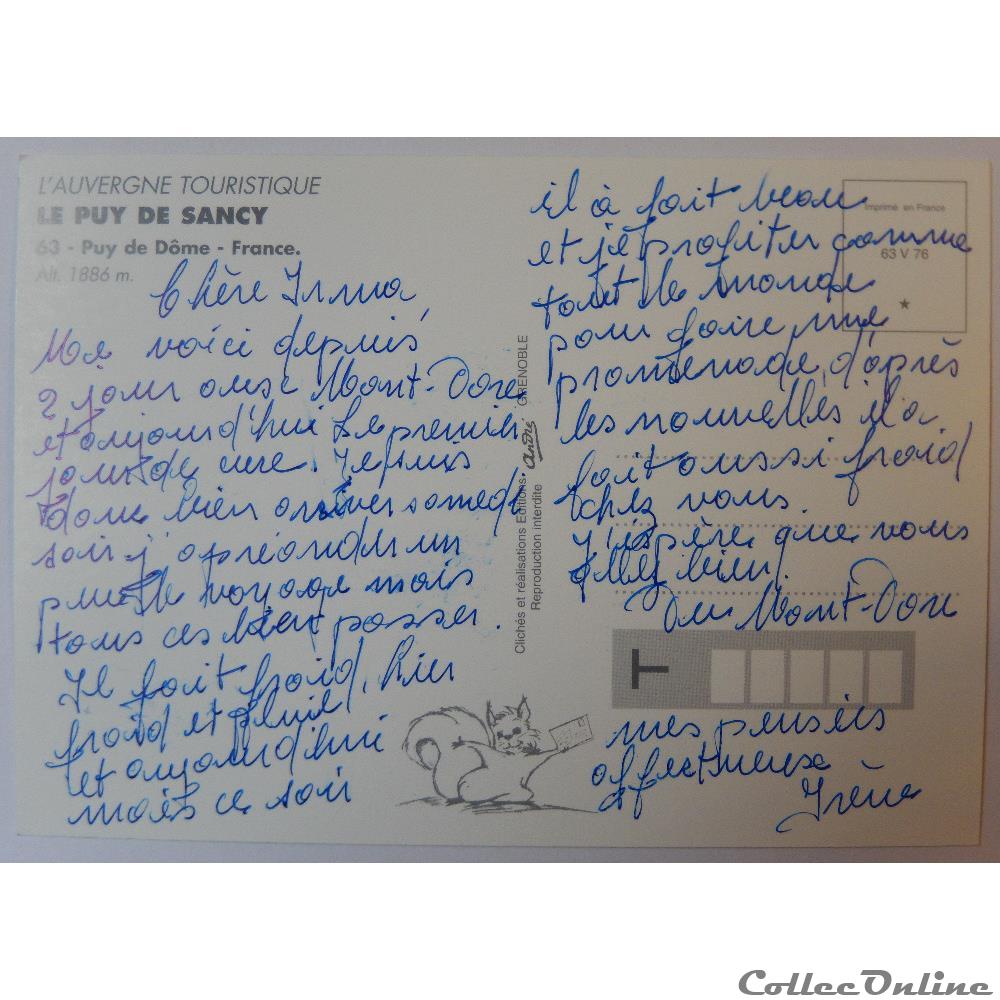 L'AUVERGNE TOURISTIQUE
LE PUY DE SANCY
63 - Puy de Dôme - France.
Alt. 1886 m.
Chère Irma,
Me voici depuis
2 jour au Mont-Dore
et aujourd'hui le premier
jour de cure. Je suis
donc bien arriver samedi
soir j'apréander un
peu le voyage mais
tous ces bient passer.
Il fait froid, hier
froid et pluie
et aujourd'hui
mais ce soir
Clichés et réalisations Editions André GRENOBLE
Reproduction interdite
Imprimé en France
63 V 76
il à fait beau
et j'é profiter comme
tout le monde
pour faire une
promenade, d'après
les nouvelles il a
fait aussi froid
chez vous.
J'espère que vous
allez bien.
Du Mont-Dore
T
mes pensées
affectueuse
Irène
CollecOnline